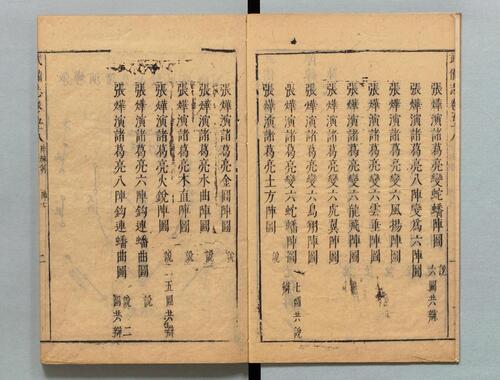 張燁演諸葛亮變蛇蟠陣圖 說 六圖共辯
張燁演諸葛亮八陣變爲六陣圖
張燁演諸葛亮變六風揚陣圖
張燁演諸葛亮變六雲垂陣圖
張燁演諸葛亮變六龍飛陣圖
張燁演諸葛亮變六虎翼陣圖
張燁演諸葛亮變六鳥翔陣圖
張燁演諸葛亮變六蛇蟠陣圖 七圖共說 辯
張燁演諸葛亮土方陣圖 說
張燁演諸葛亮金圓陣圖 說
張燁演諸葛亮水曲陣圖 說
張燁演諸葛亮木直陣圖 說 五圖共辯
張燁演諸葛亮火銳陣圖 說
張燁演諸葛亮六陣鈎連蟠曲圖 說
張燁演諸葛亮八陣鈎連蟠曲圖 二圖共辯